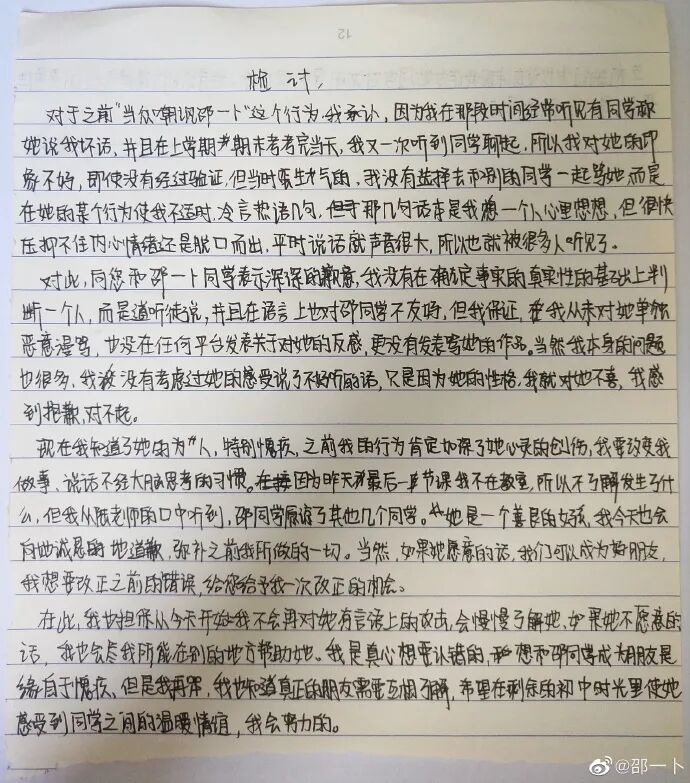 12
检讨
对于之前"当众嘲讽邵一卜"这个行为,我承认,因为我在那段时间经常听见有同学称
她说我坏话,并且在上学期期末考考完当天,我又一次听到同学聊起,所以我对她的印
象不好,即使没有经过验证,但当时蛮生气的,我没有选择去和别的同学一起骂她,而是
在她的某个行为使我不适时,冷言热语几句,但于那几句话本是我想一个人心里想想,但很快
压抑不住内心情绪还是脱口而出,平时说话就声音很大,所以也就被很多人听见了。
对此,向您和邵一卜同学表示深深的歉意,我没有在确定事实的真实性的基础上判
断一个人,而是道听徒说,并且在语言上也对邵同学不友好,但我保证,我从未对她单独
恶意谩骂,也没在任何平台发表关于对她的反感,更没有发表骂她的作品。当然我本身的问题
也很多,我没有考虑过她的感受说了不好听的话,只是因为她的性格,我就对她不喜,我感
到抱歉,对不起。
现在我知道了她的为人,特别愧疚,之前我的行为肯定加深了她心灵的创伤,我要改变我
做事、说话不经大脑思考的习惯。因为昨天最后一节课我不在教室,所以不了解发生了什
么,但我从老师的口中听到,邵同学原谅了其他几个同学。她是一个善良的女孩,我今天也会
向她诚恳的地道歉,弥补之前我所做的一切。当然,如果她愿意的话,我们可以成为好朋友,
我想要改正之前的错误,给您给予我一次改正的机会。
在此,我也担保从今天开始我不会再对她有言语上的攻击,会慢慢了解她,如果她不愿意的
话,我也会尽我所能在别的地方帮助她。我是真心想要认错的,想和邵同学成为朋友是
缘自于愧疚,但是我再深,我也知道真正的朋友需要互相了解,希望在剩余的初中时光里使她
感受到同学之间的温暖情谊,我会努力的。
@邵一卜